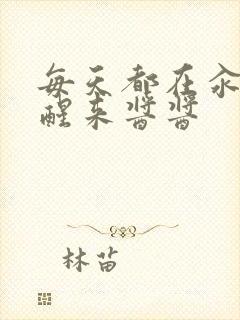 每天都在汆
醒来酱酱
林苗